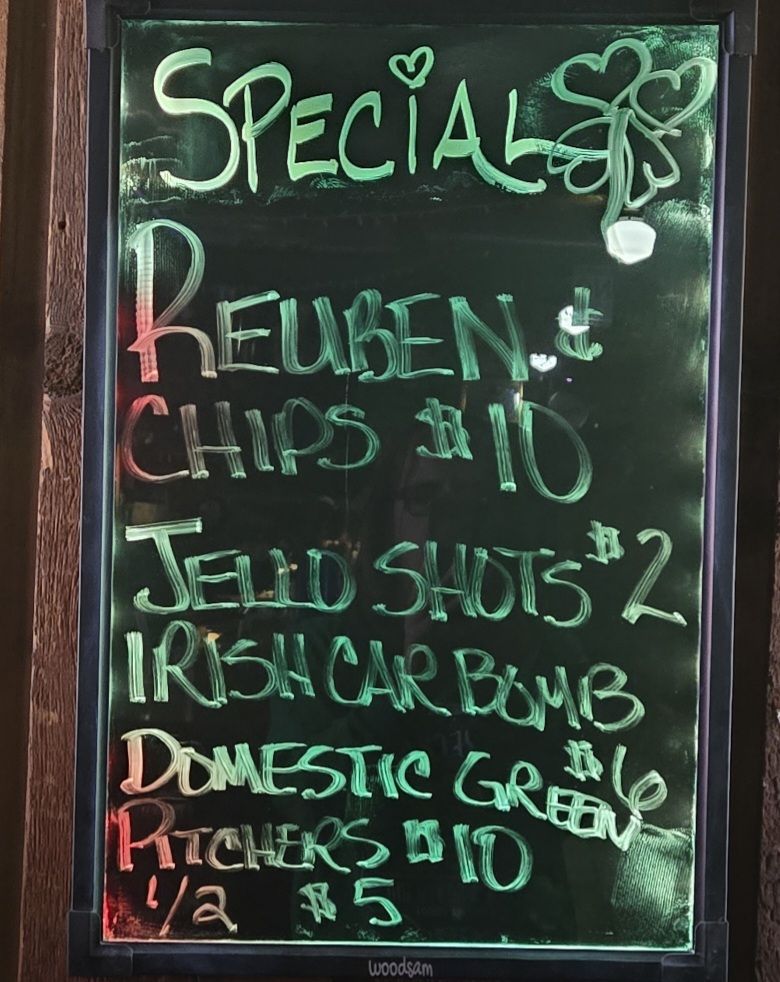 SPECIAL
REUBEN &
CHIPS $10
JELLO SHOTS $2
IRISH CAR BOMB
$6
DOMESTIC GREEN
PITCHERS $10
1/2 $5
woodsam